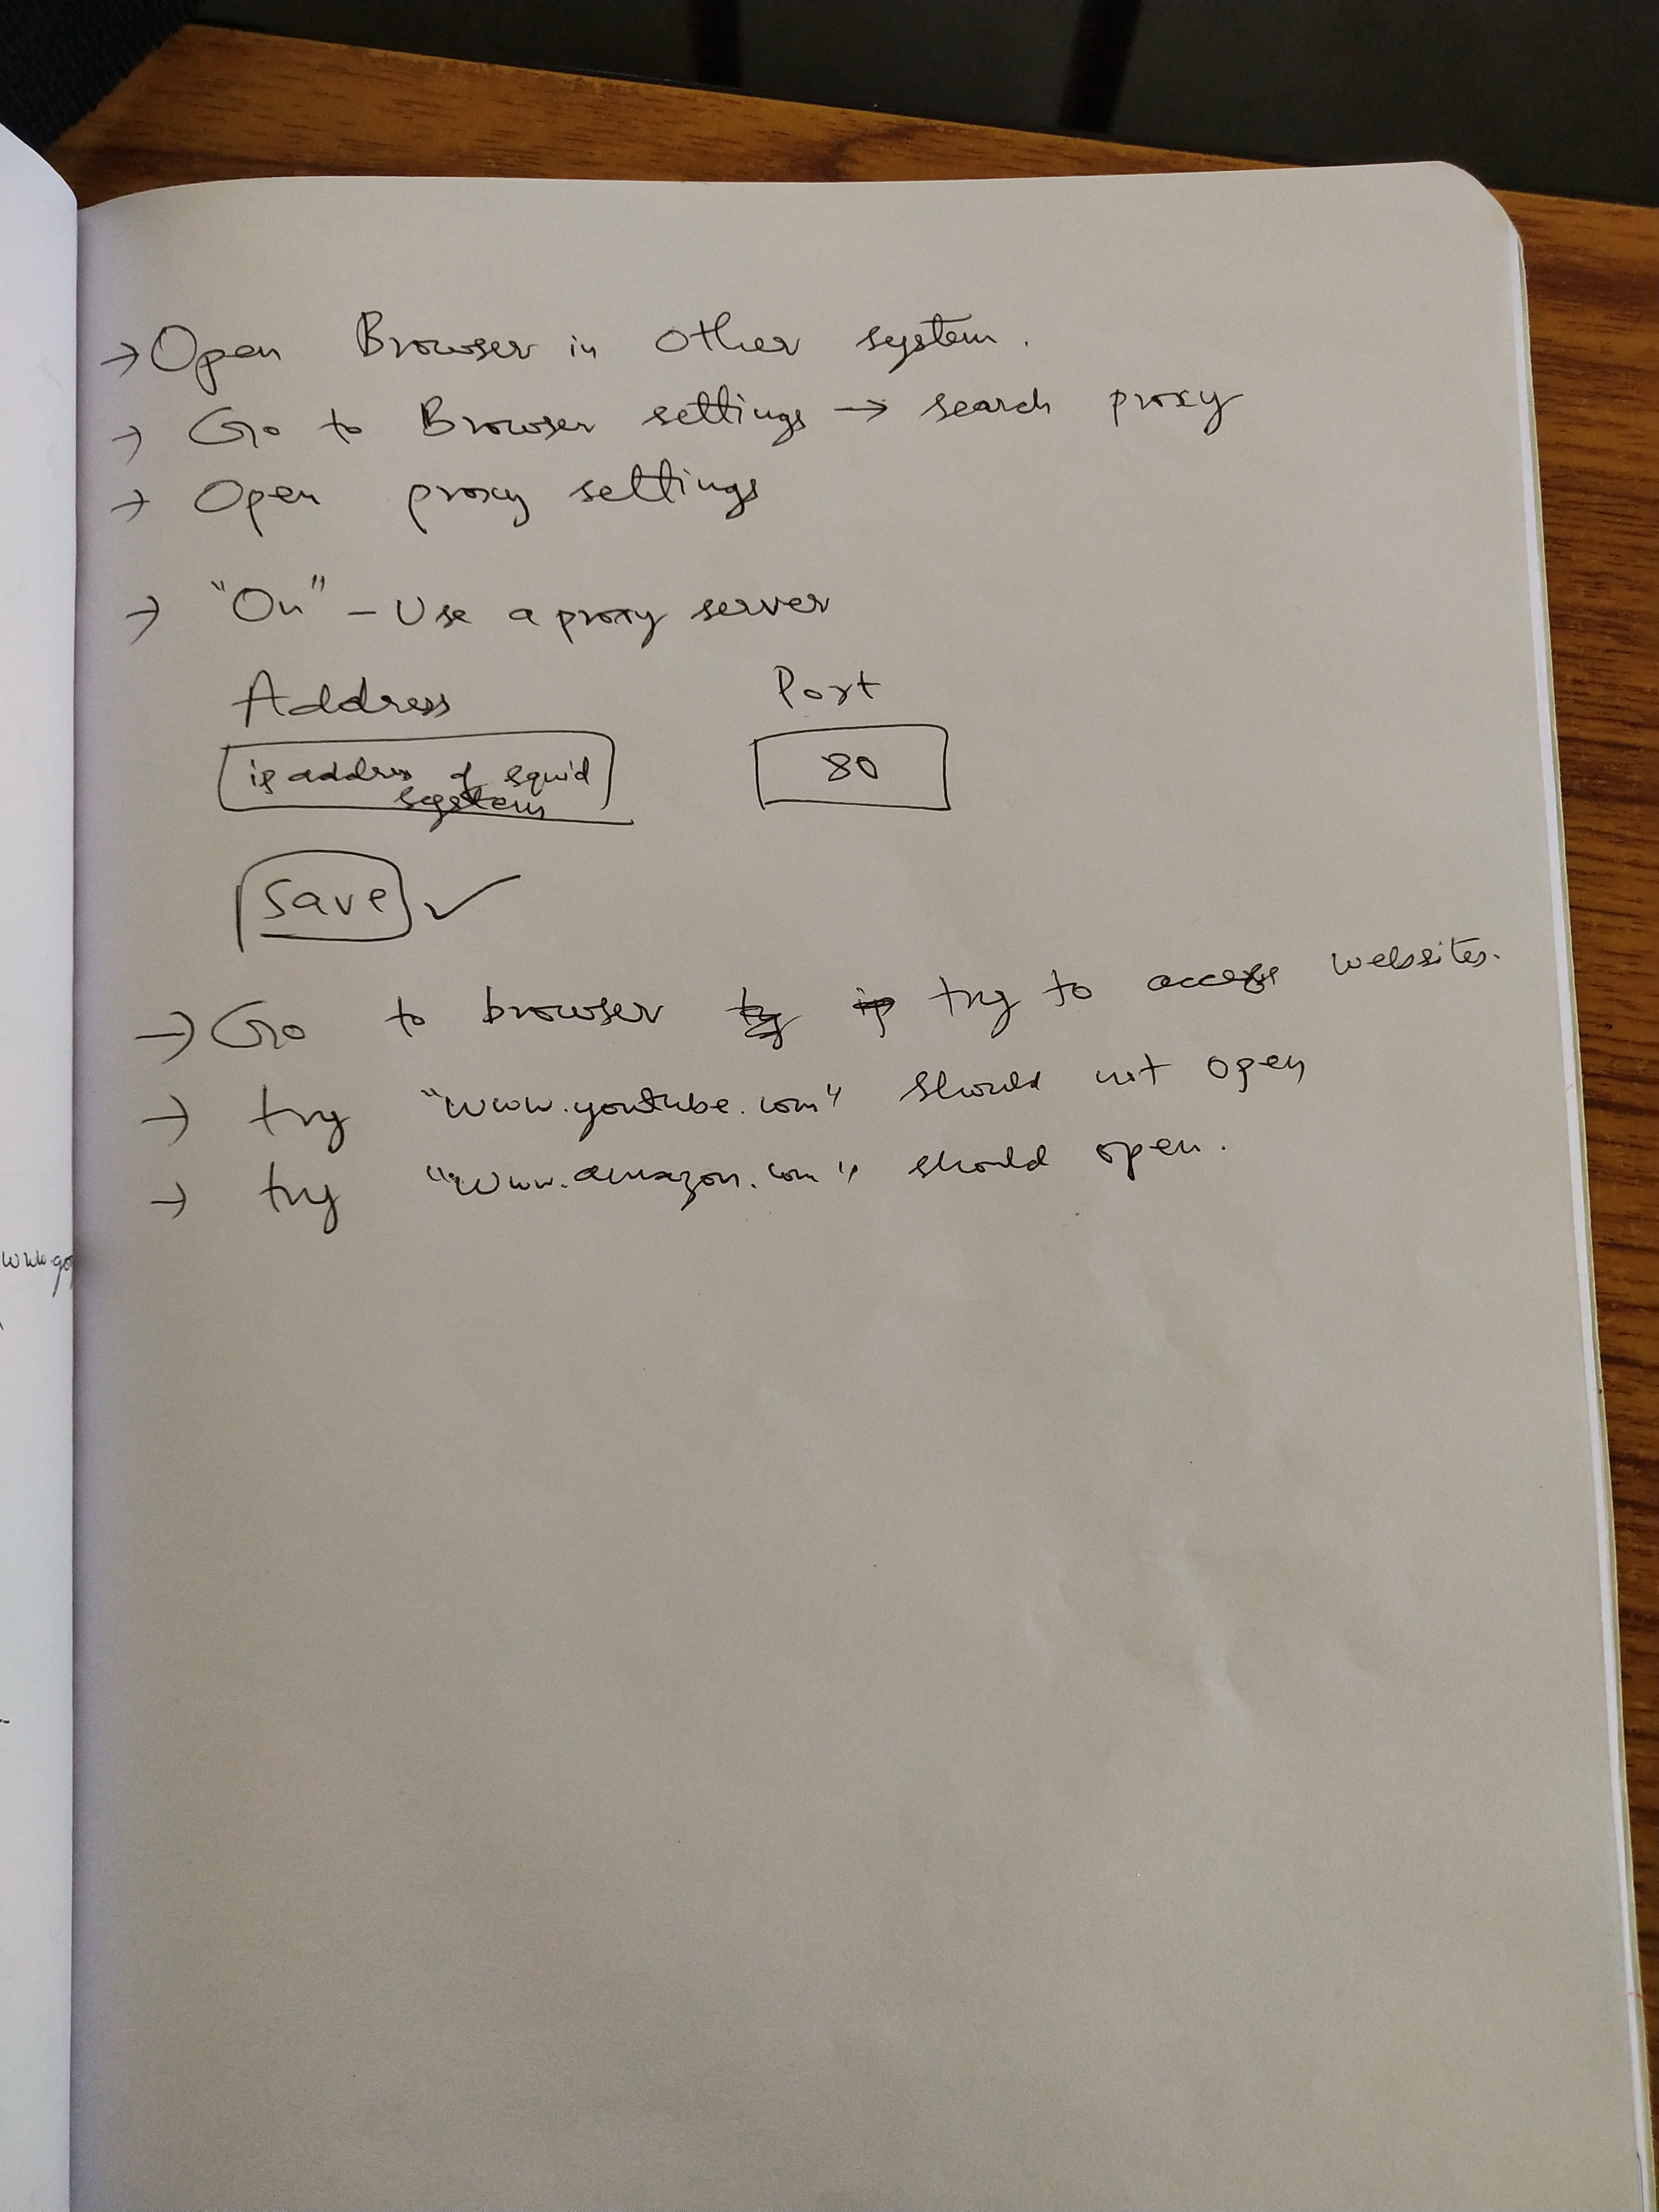 → Open Browser in other system.
→ Go to Browser settings → search proxy
→ Open proxy settings
→ "On" - Use a proxy server
Address Port
ip address of squid 80
system
Save ✓
→ Go to browser try to access websites.
→ try "www.youtube.com" should not open
→ try "www.amazon.com" should open.
www.go